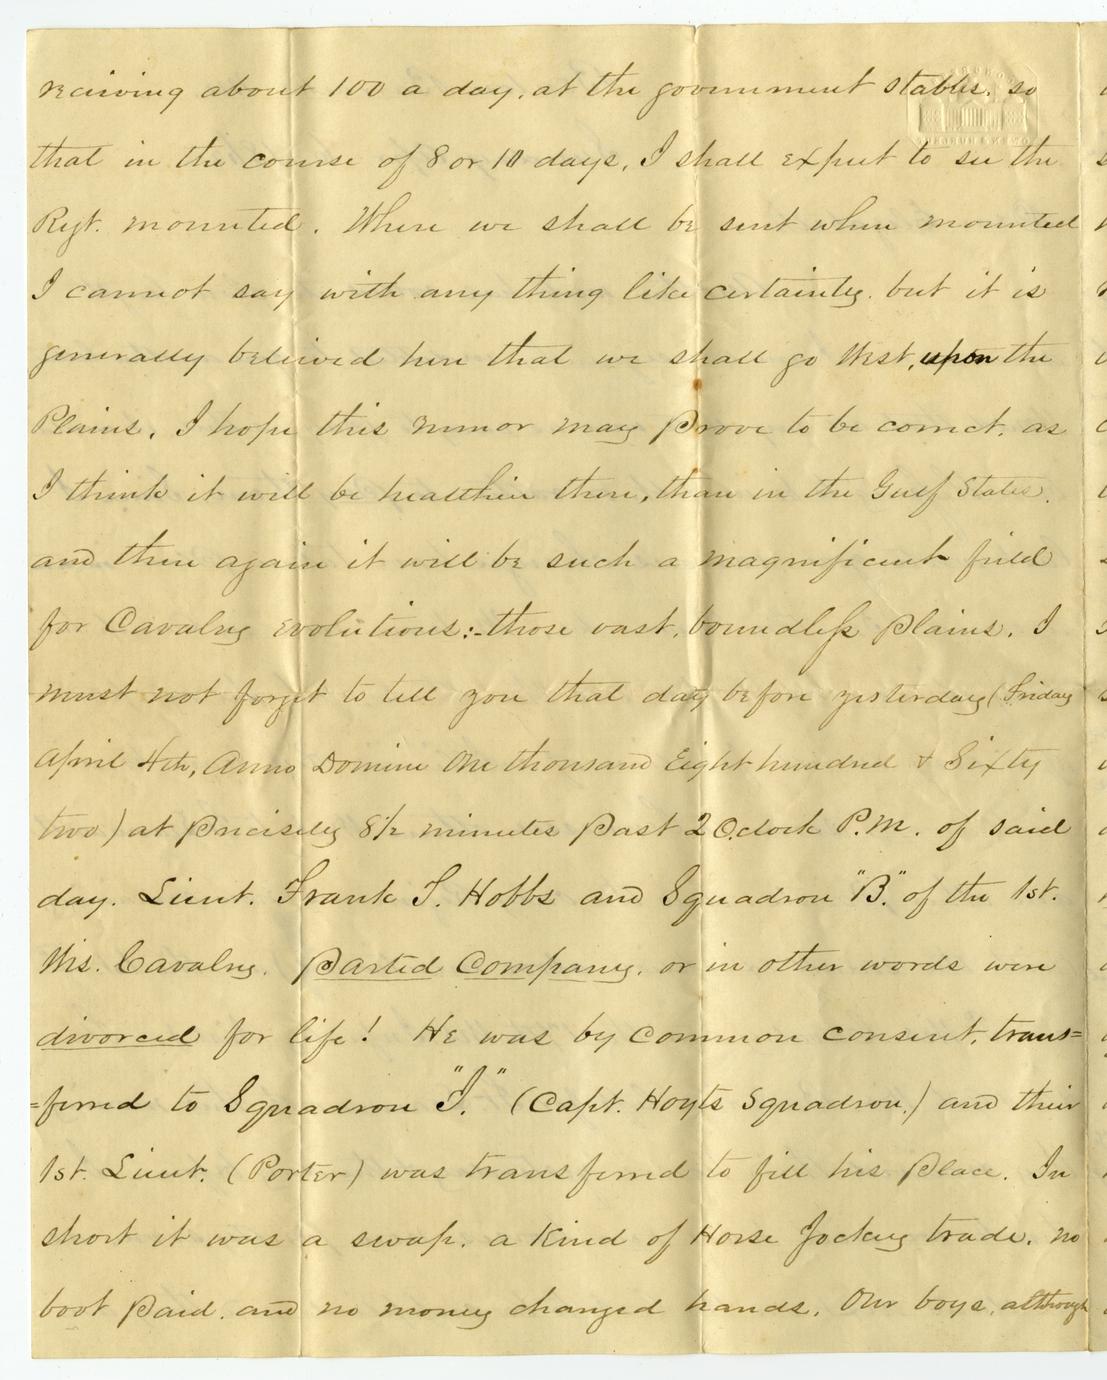 reciving about 100 a day, at the government stables, so
that in the course of 8 or 10 days, I shall expect to see the
Regt. mounted. Where we shall be sent when mounted
I cannot say with any thing like certainty. but it is
generally believed here that we shall go West, upon the
Plains. I hope this rumor may prove to be correct, as
I think it will be healthier there, than in the Gulf States.
and then again it will be such a magnificent field
for Cavalry evolutions:- those vast, boundless plains. I
must not forget to tell you that day before yesterday (Friday
April 4th, Anno Domini One thousand Eight hundred & Sixty
two) at precisely 8½ minutes past 2 O.clock P.M. of said
day. Lieut. Frank T. Hobbs and Squadron "B." of the 1st.
Wis. Cavalry. Parted Company, or in other words were
divorced for life! He was by common consent, trans=
=ferred to Squadron "I." (Capt. Hoyts Squadron.) and their
1st. Lieut. (Porter) was transferred to fill his place. In
short it was a swap. a kind of Horse Jockey trade. no
boot paid. and no money changed hands. Our boys, although